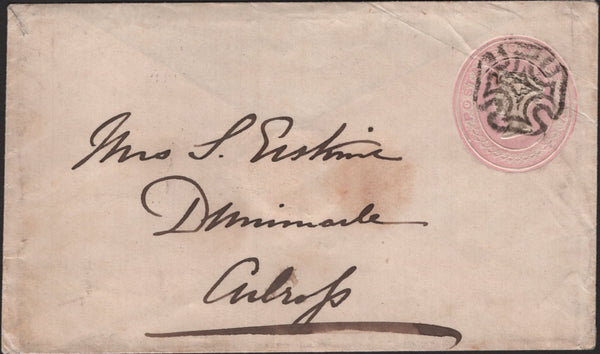 Mrs S. Erskine
Dunimarle
Culroſs